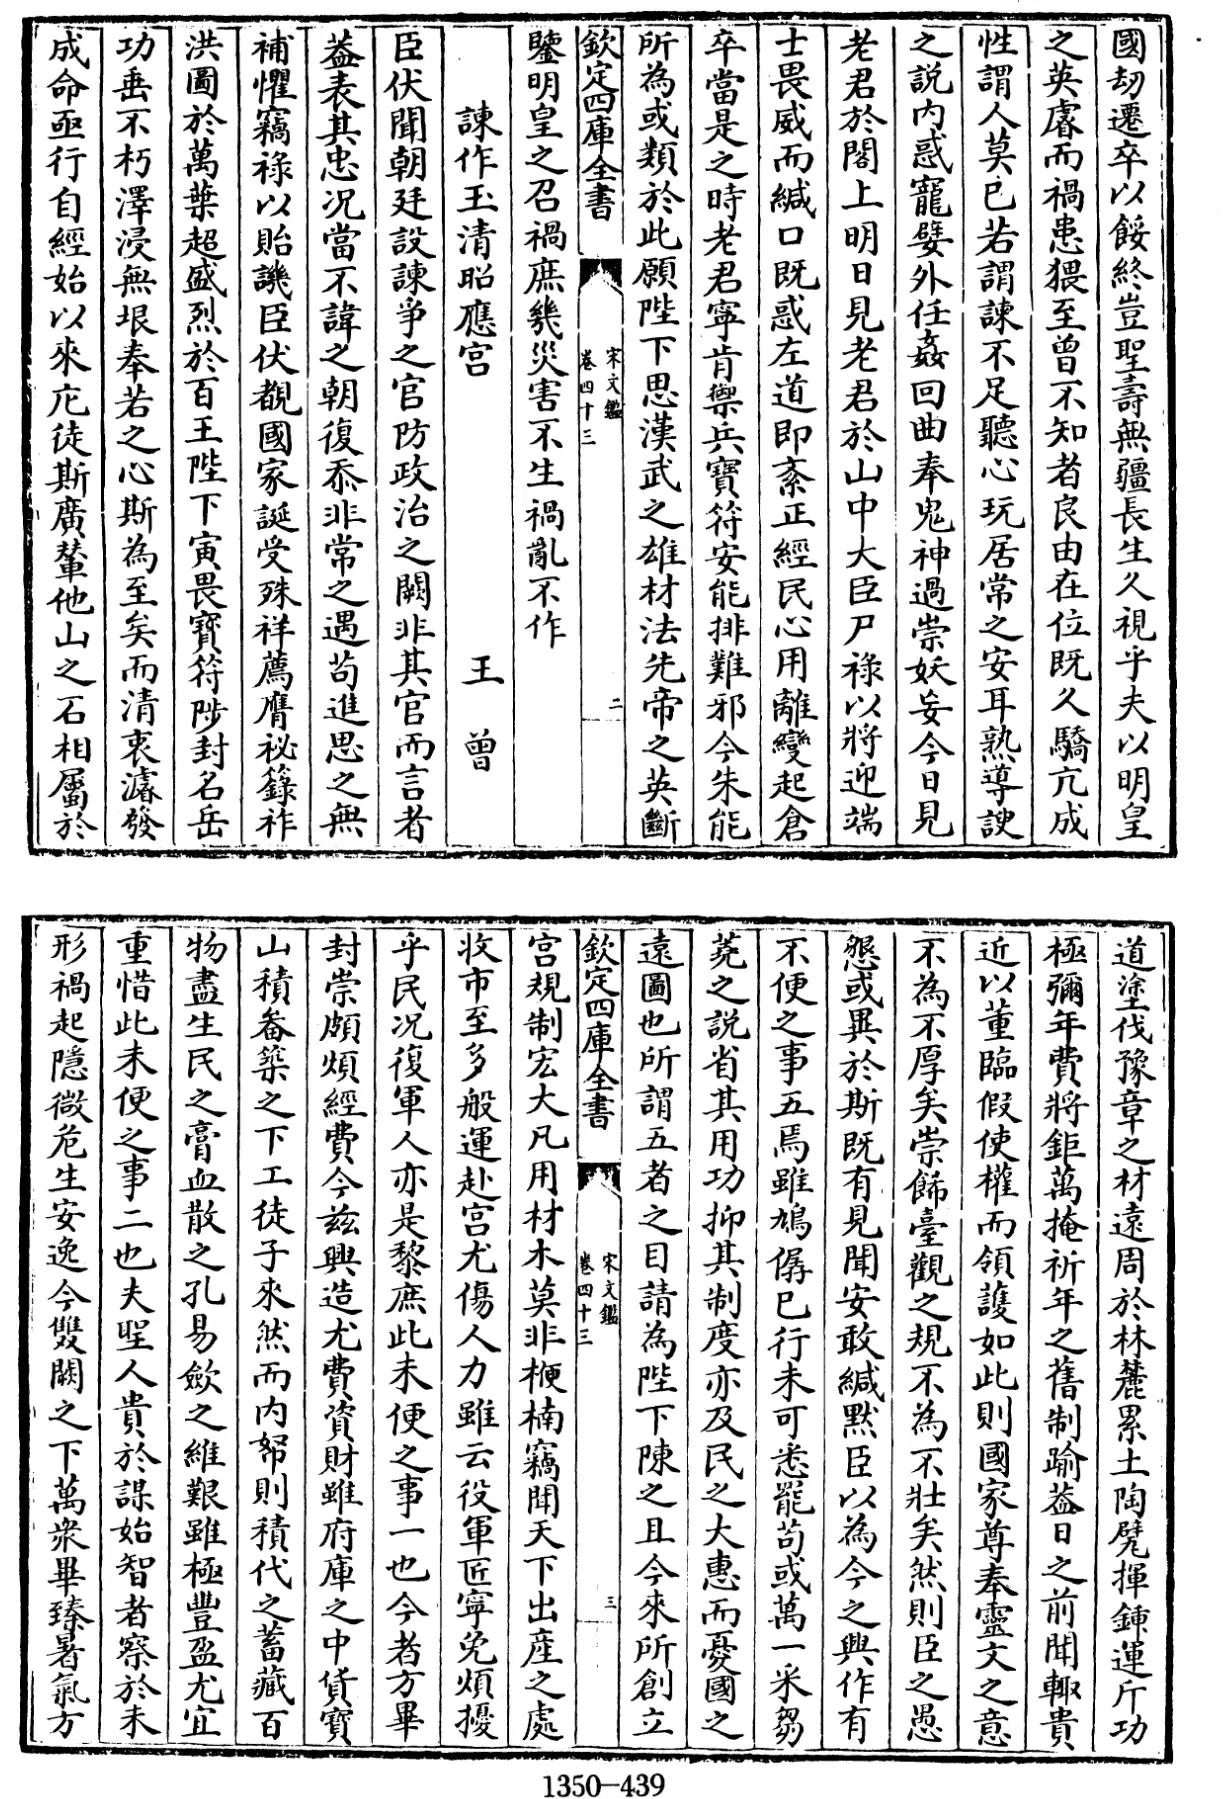 國刼遷卒以餒終豈聖壽無疆長生久視乎夫以明皇
之英睿而禍患猥至曾不知者良由在位既久驕亢成
性謂人莫已若謂諫不足聽心玩居常之安耳熟導諛
之説内惑寵嬖外任姦回曲奉鬼神過崇妖妄今日見
老君於閣上明日見老君於山中大臣尸祿以將迎端
士畏威而緘口既惑左道即紊正經民心用離變起倉
卒當是之時老君寧肯禦兵寶符安能排難邪今朱能
所為或類於此願陛下思漢武之雄材法先帝之英斷
欽定四庫全書
宋文鑑
卷四十三
二
鑒明皇之召禍庶幾災害不生禍亂不作
諫作玉清昭應宫
王曾
臣伏聞朝廷設諫爭之官防政治之闕非其官而言者
葢表其忠况當不諱之朝復忝非常之遇茍進思之無
補懼竊祿以貽譏臣伏覩國家誕受殊祥薦膺祕籙祚
洪圖於萬葉超盛烈於百王陛下寅畏寶符陟封名岳
功垂不朽澤浸無垠奉若之心斯為至矣而清衷濬發
成命亟行自經始以來庀徒斯廣輦他山之石相屬於
道塗伐豫章之材遠周於林麓累土陶甓揮鍤運斤功
極彌年費將鉅萬掩祈年之舊制踰葢日之前聞輙貴
近以董臨假使權而領護如此則國家尊奉靈文之意
不為不厚矣崇飾臺觀之規不為不壯矣然則臣之愚
懇或異於斯既有見聞安敢緘默臣以為今之興作有
不便之事五焉雖鳩僝已行未可悉罷茍或萬一采芻
蕘之説省其用功抑其制度亦及民之大惠而憂國之
遠圖也所謂五者之目請為陛下陳之且今來所創立
欽定四庫全書
宋文鑑
卷四十三
三
宫規制宏大凡用材木莫非楩楠竊聞天下出産之處
收市至多般運赴宫尤傷人力雖云役軍匠寧免煩擾
乎民况復軍人亦是黎庶此未便之事一也今者方畢
封崇頗煩經費今兹興造尤費資財雖府庫之中貨寶
山積畚築之下工徒子來然而内帑則積代之蓄藏百
物盡生民之膏血散之孔易歛之維艱雖極豐盈尤宜
重惜此未便之事二也夫聖人貴於謀始智者察於未
形禍起隱微危生安逸今雙闕之下萬衆畢臻暑氣方
1350-439